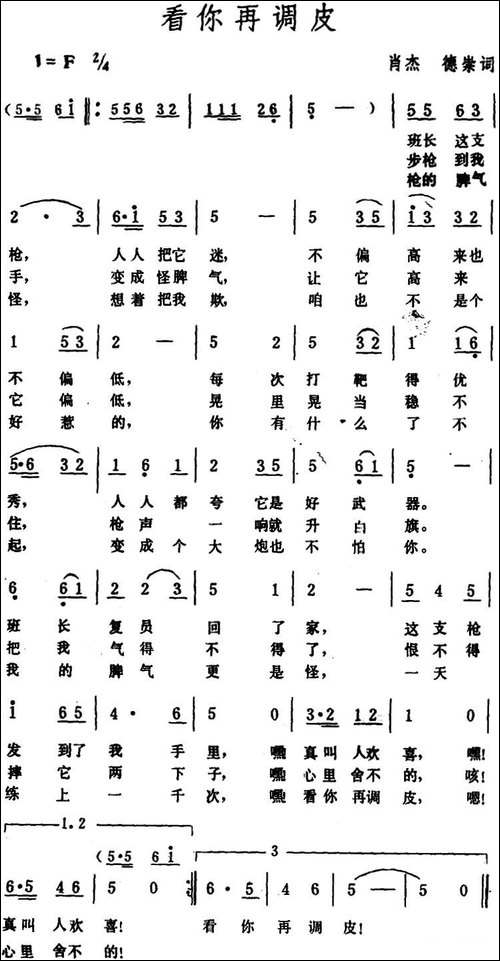 看你再调皮
1=F 2/4
肖杰 德崇词
(5·5 6i ‖: 556 32 | 111 26 | 5 — ) | 55 63 |
班长 这支
步枪 到我
枪的 脾气
2 · 3 | 6·i 53 | 5 — | 5 35 | i3 32 |
枪, 人人 把它 迷, 不 偏 高 来也
手, 变成 怪脾 气, 让 它 高 来
怪, 想着 把我 欺, 咱 也 不 是个
1 53 | 2 — | 5 2 | 5 32 | 1 16 |
不 偏 低, 每 次 打 靶 得 优
它 偏 低, 晃 里 晃 当 稳 不
好 惹 的, 你 有 什 么 了 不
5·6 32 | 1 6 1 | 2 35 | 5 61 | 5 — |
秀, 人 人 都 夸 它是 好 武 器。
住, 枪 声 一 响就 升 白 旗。
起, 变 成 个 大 炮也 不 怕 你。
6 61 | 2 2 3 | 5 1 | 2 — | 5 4 5 |
班 长 复 员 回 了 家, 这 支 枪
把 我 气 得 不 得 了, 恨 不 得
我 的 脾 气 更 是 怪, 一 天
i 65 | 4 · 6 | 5 0 | 3·2 12 | 1 0 |
发 到了 我 手 里, 嘿 真叫 人欢 喜, 嘿!
摔 它 两 下 子, 嘿 心里 舍不 的, 咳!
练 上 一 千 次, 嘿 看你 再调 皮, 嗯!
1.2 3
(5·5 6i
6·5 46 | 5 0 :‖ 6 · 5 | 4 6 | 5 — | 5 0 ‖
真叫 人欢 喜! 看 你 再 调 皮!
心里 舍不 的!